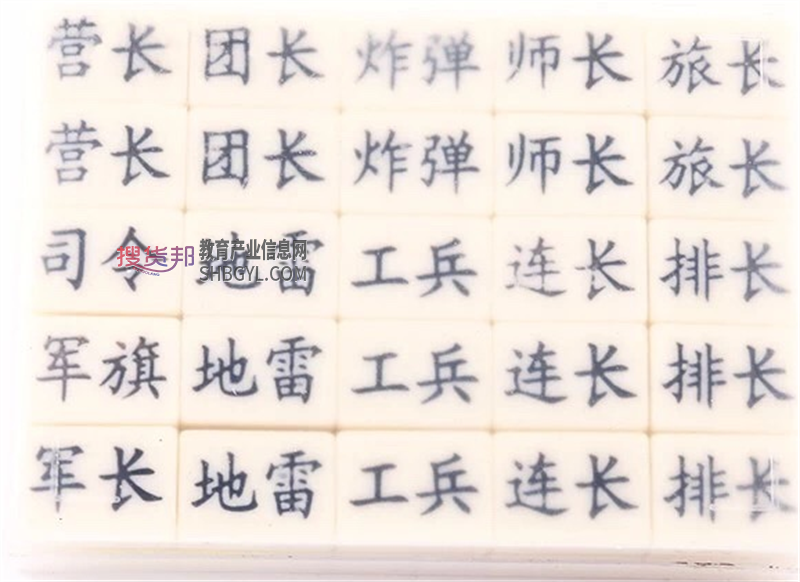 营长 团长 炸弹 师长 旅长
营长 团长 炸弹 师长 旅长
司令 地雷 工兵 连长 排长
搜货邦 教育产业信息网
SHBGYL.COM
军旗 地雷 工兵 连长 排长
军长 地雷 工兵 连长 排长